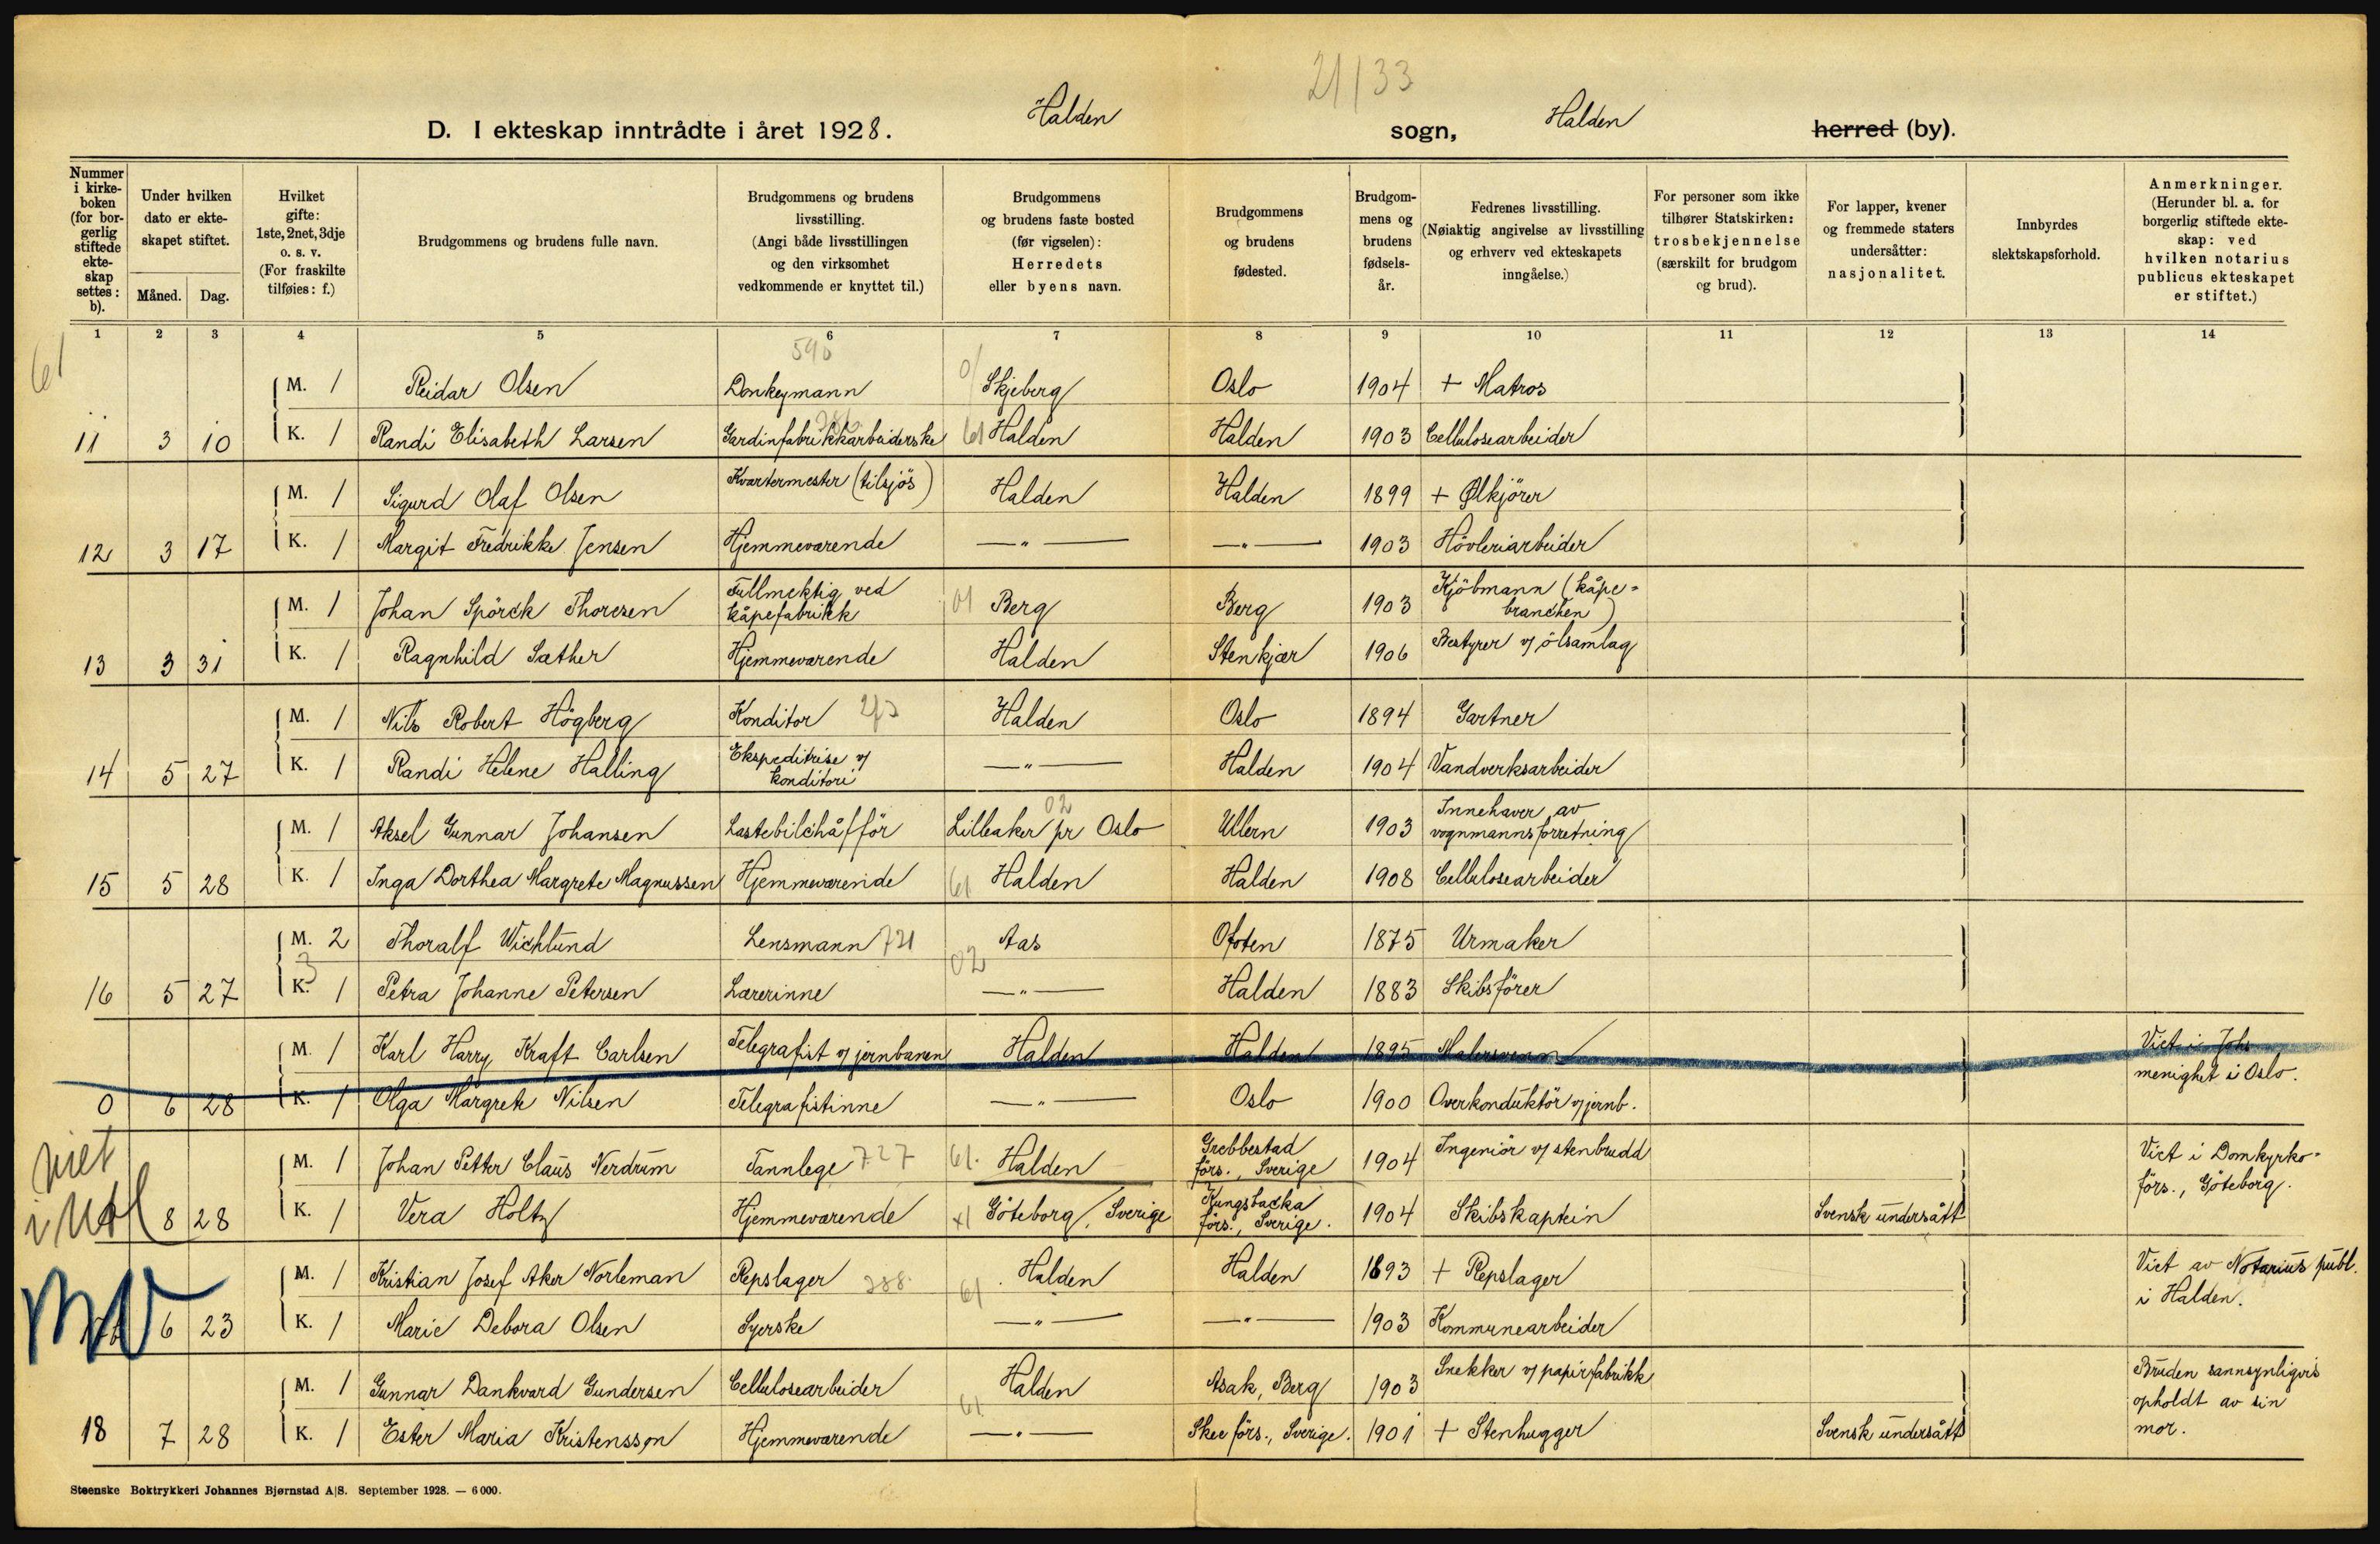 21/33
D. I ekteskap inntrådte i året 1928. Halden sogn, Halden herred (by).
Nummer i kirke-boken (for bor-gerlig stiftede ekte-skap settes: b).
Under hvilken dato er ekte-skapet stiftet.
Måned. Dag.
Hvilket gifte: 1ste, 2net, 3dje o. s. v. (For fraskilte tilføies: f.)
Brudgommens og brudens fulle navn.
Brudgommens og brudens livsstilling. (Angi både livsstillingen og den virksomhet vedkommende er knyttet til.)
Brudgommens og brudens faste bosted (før vigselen): Herredets eller byens navn.
Brudgommens og brudens fødested.
Brudgom-mens og brudens fødsels-år.
Fedrenes livsstilling. (Nøiaktig angivelse av livsstilling og erhverv ved ekteskapets inngåelse.)
For personer som ikke tilhører Statskirken: trosbekjennelse (særskilt for brudgom og brud).
For lapper, kvener og fremmede staters undersåtter: nasjonalitet.
Innbyrdes slektskapsforhold.
Anmerkninger. (Herunder bl. a. for borgerlig stiftede ekte-skap: ved hvilken notarius publicus ekteskapet er stiftet.)
1 2 3 4 5 6 7 8 9 10 11 12 13 14
61
M. 1 Reidar Olsen Donkeymann Skjeberg Oslo 1904 + Matros
11 3 10 K. 1 Randi Elisabeth Larsen Gardinfabrikkarbeiderske 61 Halden Halden 1903 Cellulosearbeider
M. 1 Sigurd Olaf Olsen Kvartermester (tilsjös) Halden Halden 1899 + Ølkjörer
12 3 17 K. 1 Margit Fredrikke Jensen Hjemmeværende —"— —"— 1903 Hövleriarbeider
M. 1 Johan Spörck Thoresen Fullmektig ved kåpefabrikk 01 Berg Berg 1903 Kjöbmann (kåpe=branchen)
13 3 31 K. 1 Ragnhild Sæther Hjemmeværende Halden Stenkjær 1906 Bestyrer v/ ölsamlag
M. 1 Nils Robert Högberg Konditor Halden Oslo 1894 Gartner
14 5 27 K. 1 Randi Helene Halling Ekspeditrise v/ konditori —"— Halden 1904 Vandverksarbeider
M. 1 Aksel Gunnar Johansen Lastebilchåfför 02 Lilleaker pr Oslo Ullern 1903 Innehaver av vognmannsforretning
15 5 28 K. 1 Inga Dorthea Margrete Magnussen Hjemmeværende 61 Halden Halden 1908 Cellulosearbeider
M. 2 Thoralf Wichlund Lensmann 721 02 Aas Ofoten 1875 Urmaker
16 5 27 K. 3 1 Petra Johanne Petersen Lærerinne —"— Halden 1883 Skibsförer
M. 1 Karl Harry Kraft Carlsen Telegrafist v/ jernbanen Halden Halden 1895 Malersvenn Viet i Johs menighet i Oslo.
0 6 28 K. 1 Olga Margrete Nilsen Telegrafistinne —"— Oslo 1900 Overkonduktör v/ jernb.
M. 1 Johan Petter Claus Nerdrum Tannlege 727 61. Halden Grebbestad förs., Sverige 1904 Ingeniör v/ stenbrudd Viet i Domkyrko=förs., Göteborg.
viet i utl 8 28 K. 1 Vera Holtz Hjemmeværende x1 Göteborg, Sverige Kungsbacka förs., Sverige. 1904 Skibskaptein Svensk undersått
M. 1 Kristian Josef Aker Norleman Repslager 388 61 Halden Halden 1893 + Repslager Viet av Notarius publ. i Halden.
6 23 K. 1 Marie Debora Olsen Syerske —"— —"— 1903 Kommunearbeider
M. 1 Gunnar Dankvard Gundersen Cellulosearbeider 61 Halden Asak, Berg 1903 Snekker v/ papirfabrikk Bruden sannsynligvis opholdt av sin mor.
18 7 28 K. 1 Ester Maria Kristensson Hjemmeværende —"— Skee förs., Sverige. 1901 + Stenhugger Svensk undersått
Steenske Boktrykkeri Johannes Bjørnstad A|S. September 1928. — 6 000.